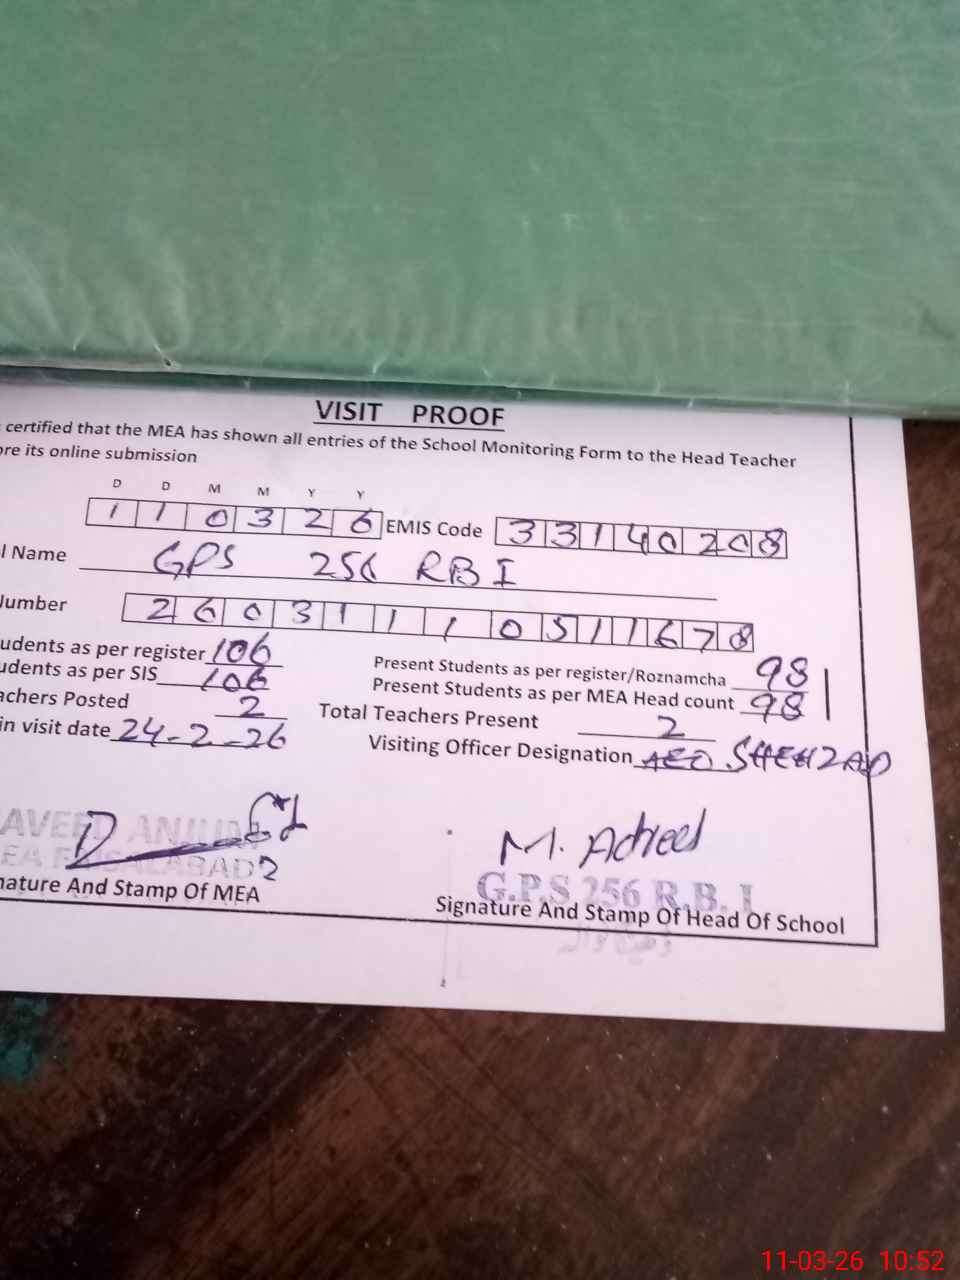 VISIT PROOF
certified that the MEA has shown all entries of the School Monitoring Form to the Head Teacher
ore its online submission
D D M M Y Y
1 1 0 3 2 6 EMIS Code 3 3 1 4 0 2 0 8
l Name GPS 256 RB I
Number 2 6 0 3 1 1 1 0 5 1 1 6 7 8
udents as per register 106 Present Students as per register/Roznamcha 98
udents as per SIS 106 Present Students as per MEA Head count 98
achers Posted 2 Total Teachers Present 2
in visit date 24-2-26 Visiting Officer Designation AEO SHEHZAD
AVEED ANJUM
EA FAISALABAD 2
M. Adreel
G.P.S 256 R.B. I
nature And Stamp Of MEA Signature And Stamp Of Head Of School
11-03-26 10:52